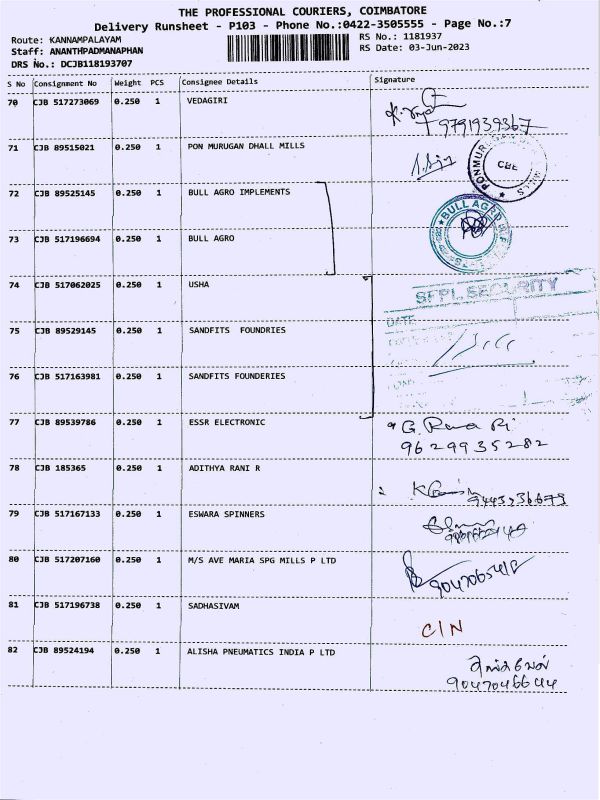 THE PROFESSIONAL COURIERS, COIMBATORE
Delivery Runsheet - P103 - Phone No.:0422-3505555 - Page No.:7
Route: KANNAMPALAYAM
RS No.: 1181937
Staff: ANANTHPADMANAPHAN
RS Date: 03-Jun-2023
DRS No.: DCJB118193707
S No Consignment No Weight PCS Consignee Details Signature
70 CJB 517273069 0.250 1 VEDAGIRI
9791939367
71 CJB 89515021 0.250 1 PON MURUGAN DHALL MILLS
CBE
72 CJB 89525145 0.250 1 BULL AGRO IMPLEMENTS
BULL AGRO
73 CJB 517196694 0.250 1 BULL AGRO
74 CJB 517062025 0.250 1 USHA
SFPL SECURITY
DATE
75 CJB 89529145 0.250 1 SANDFITS FOUNDRIES
76 CJB 517163981 0.250 1 SANDFITS FOUNDERIES
77 CJB 89539786 0.250 1 ESSR ELECTRONIC
9629935282
78 CJB 185365 0.250 1 ADITHYA RANI R
79 CJB 517167133 0.250 1 ESWARA SPINNERS
80 CJB 517207160 0.250 1 M/S AVE MARIA SPG MILLS P LTD
81 CJB 517196738 0.250 1 SADHASIVAM
C/N
82 CJB 89524194 0.250 1 ALISHA PNEUMATICS INDIA P LTD
9047046644